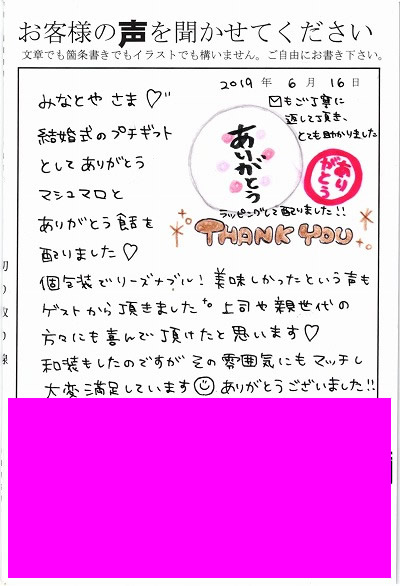 お客様の声を聞かせてください
文章でも箇条書きでもイラストでも構いません。ご自由にお書き下さい。
2019 年 6 月 16 日
みなとや さま♡
✉もご丁寧に
返して頂き、
とても助かりました
結婚式のプチギフト
として ありがとう
マシュマロと
ありがとう飴を
配りました♡
ありがとう
ありがとう
ラッピングして配りました!!
THANK YOU
個包装でリーズナブル!美味しかったという声も
ゲストから頂きました 上司や親世代の
方々にも喜んで頂けたと思います♡
和装もしたのですが その雰囲気にもマッチし
大変満足しています☺ ありがとうございました!!